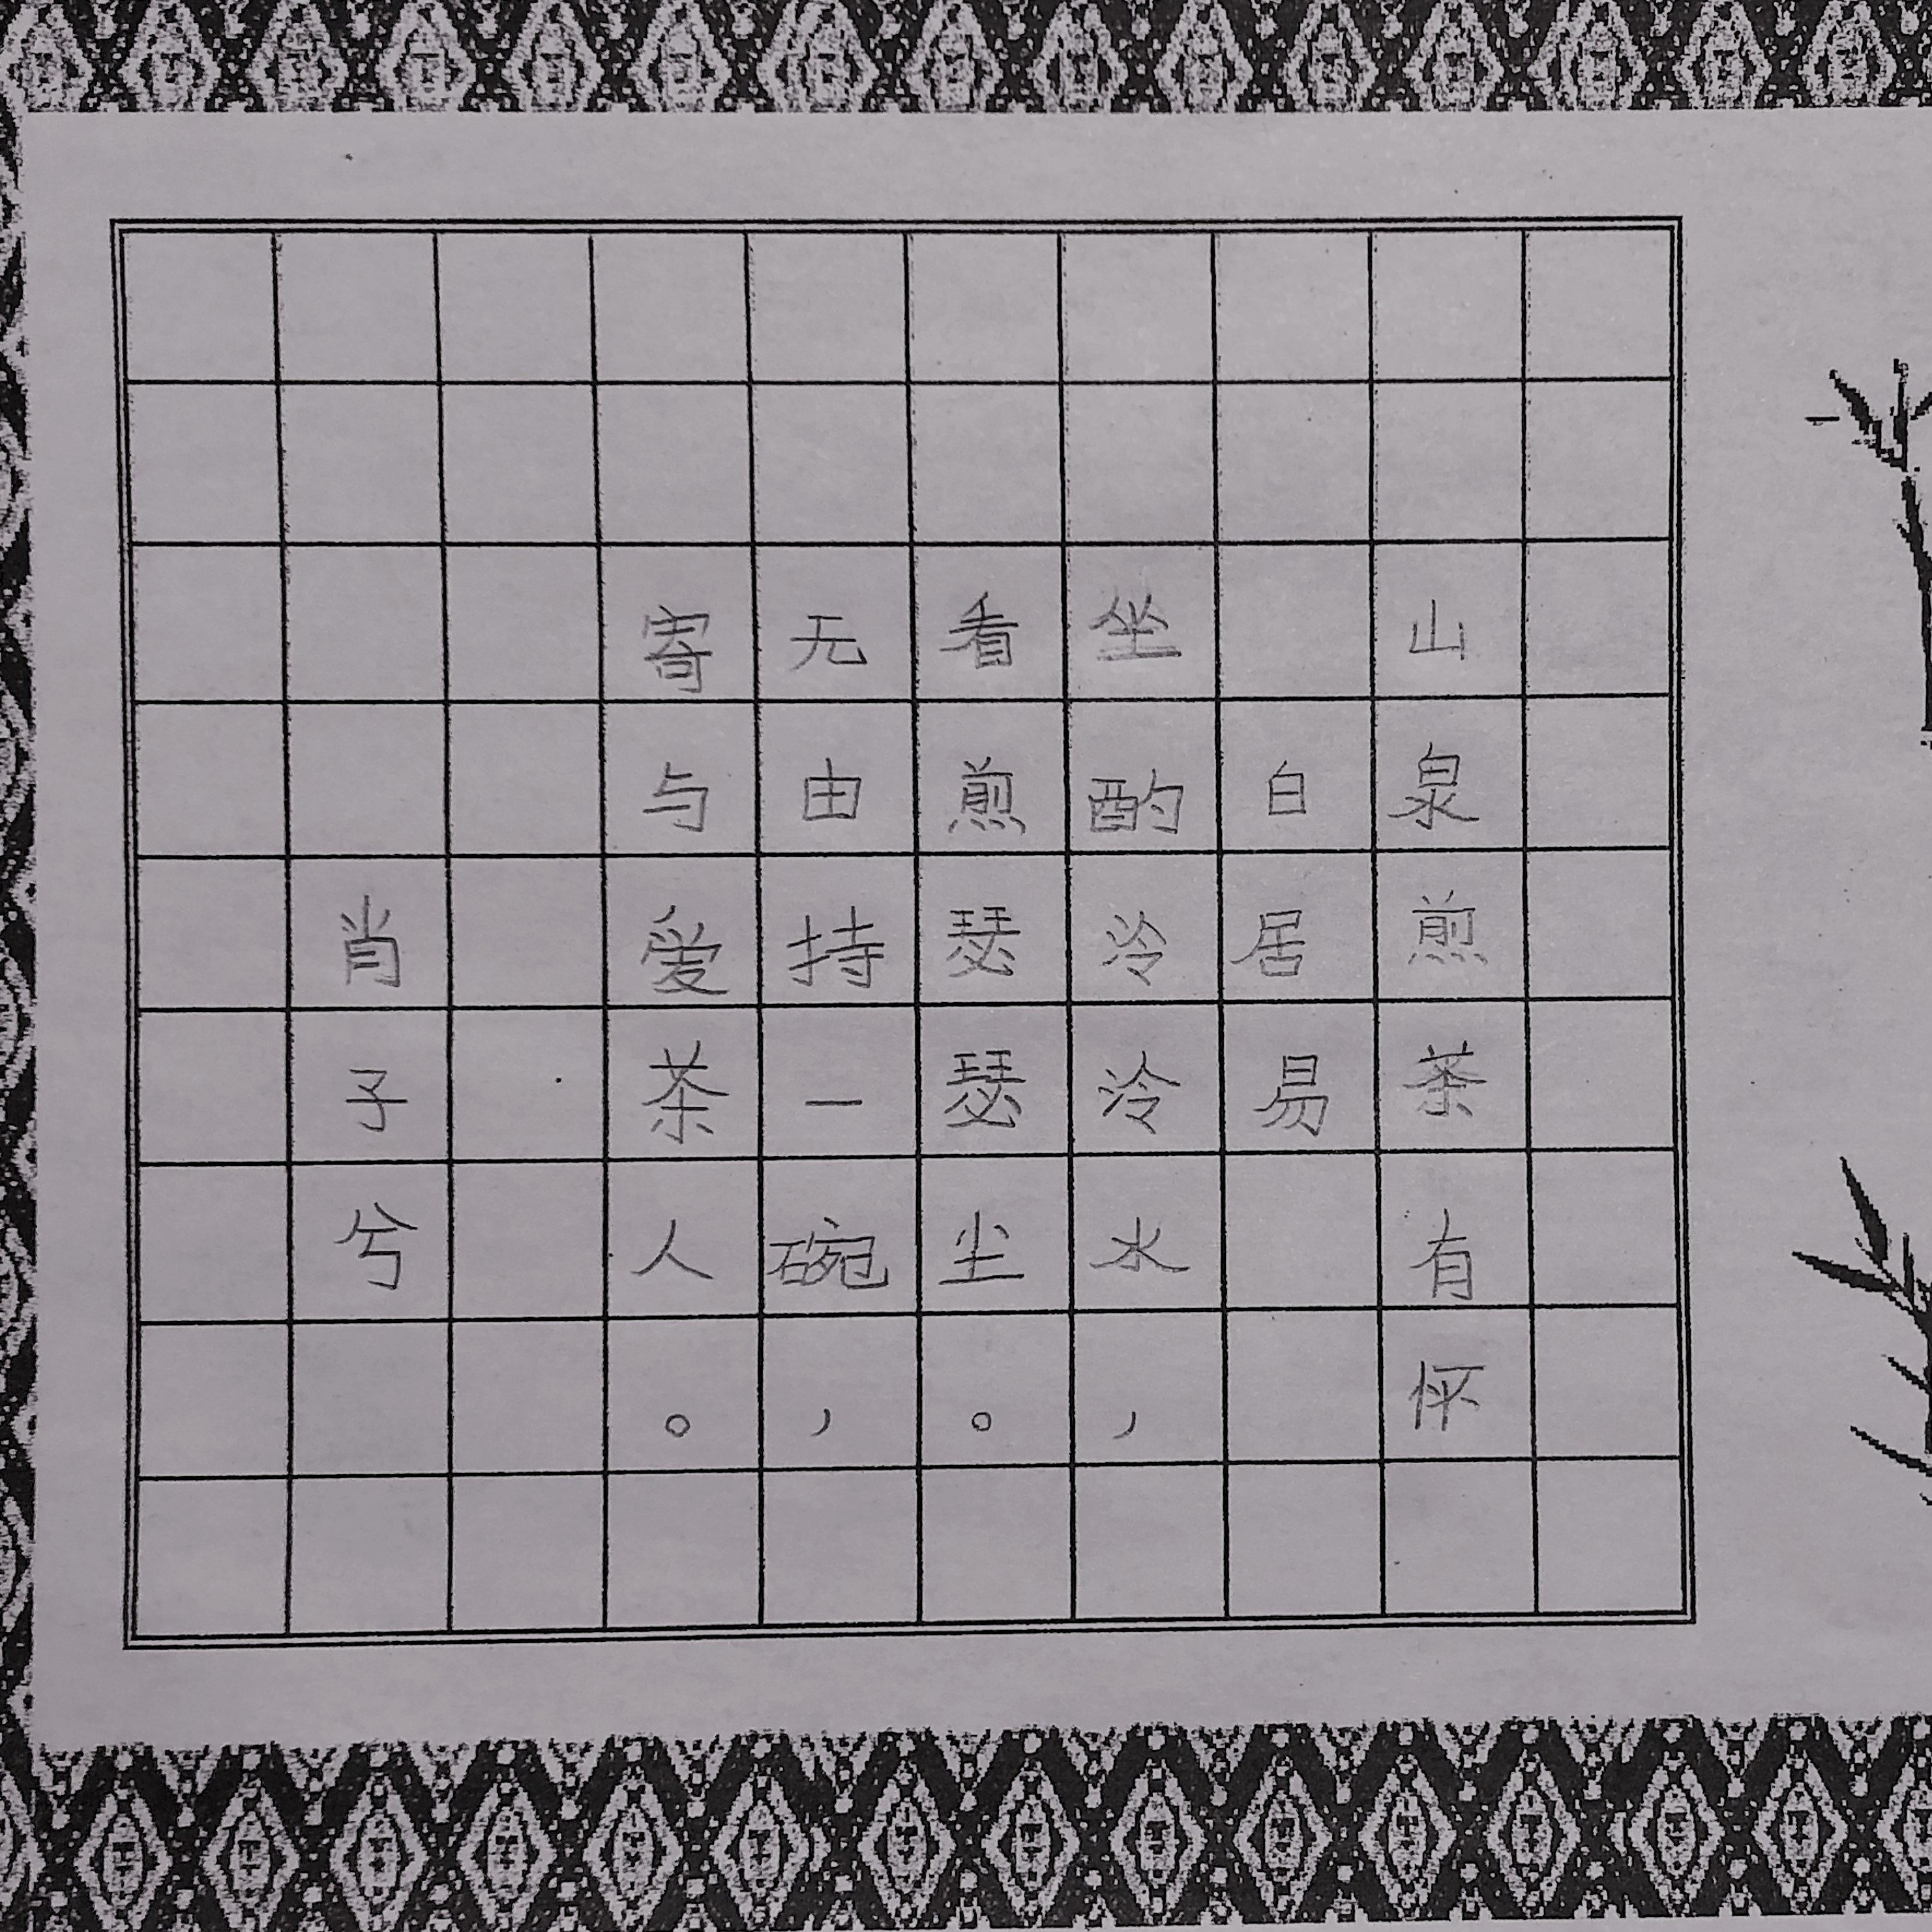 山泉煎茶有怀
白居易
坐酌泠泠水，
看煎瑟瑟尘。
无由持一碗，
寄与爱茶人。
肖子兮